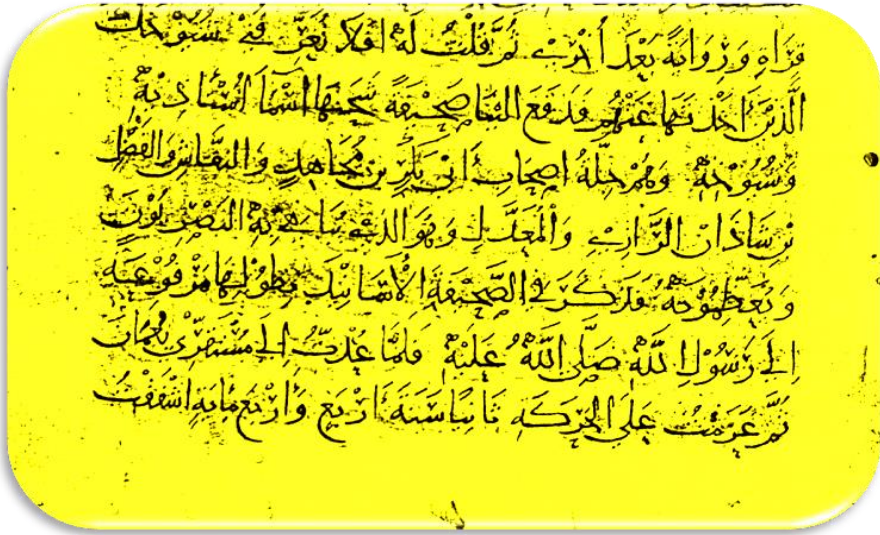 قراه ورواية بعد أخرى ثم قلت له افلا تعرفني شيوخك
الذين اخذتها عنهم فدفع الينا صحيفة سحنها اسما استاذيه
وشيوخه وهم جلة اصحاب ابي بكر بن مجاهد والنقاش والفضل
بن شاذان الرازي والمعدل وهو الذي يباهي به البصريون
ويعظمونه فذكر في الصحيفة الأسانيد بطولها مرفوعة
الى رسول الله صلى الله عليه فلما عدت الى مستقري بعمان
ثم عزمت على الحركة ثانيا سنة أربع وأربع مائة اشفقت